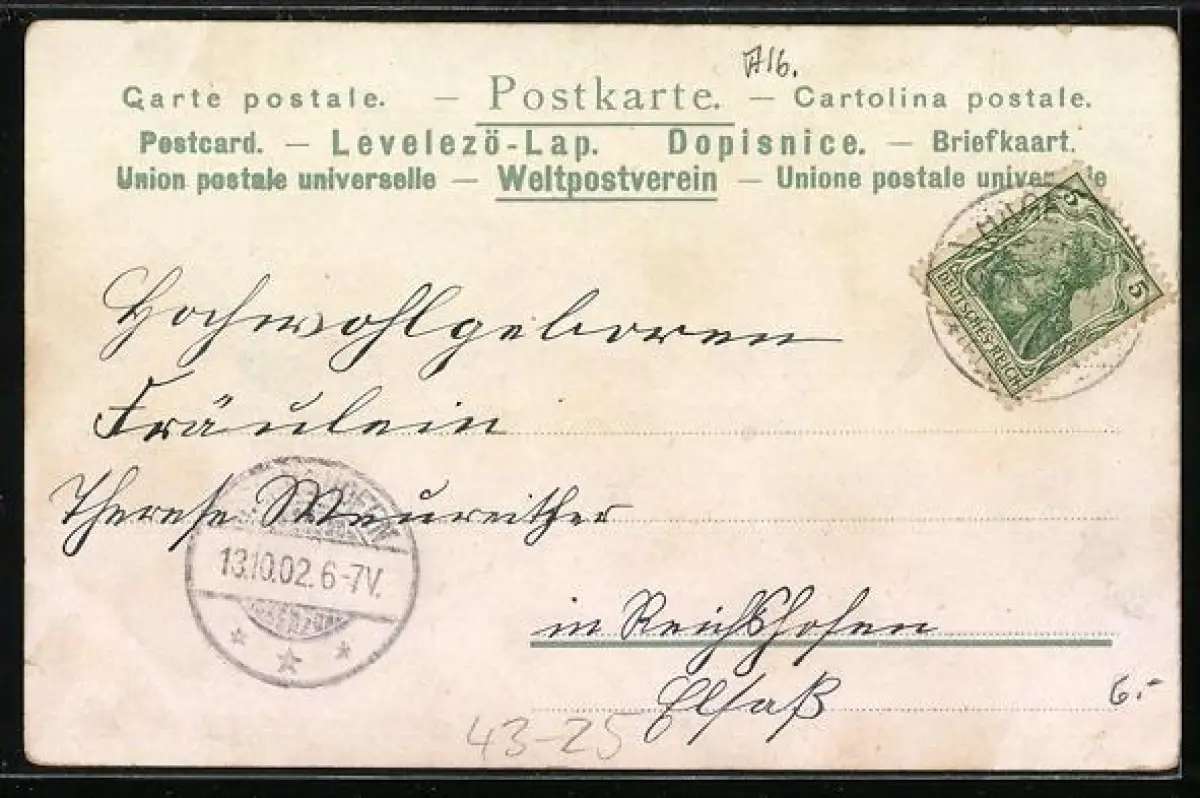 A16.
Carte postale. — Postkarte. — Cartolina postale.
Postcard. — Levelezö-Lap. Dopisnice. — Briefkaart.
Union postale universelle — Weltpostverein — Unione postale
5
5
DEUTSCHES REICH
Hochwohlgeboren
Fräulein
Therese
13.10.02. 6-7V.
in Reichshofen
Elsaß
6.-
43-25